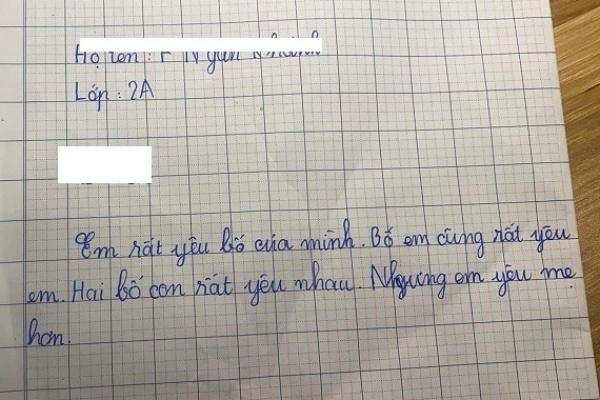 Họ tên :
Lớp : 2A
Em rất yêu bố của mình. Bố em cũng rất yêu
em. Hai bố con rất yêu nhau. Nhưng em yêu mẹ
hơn.